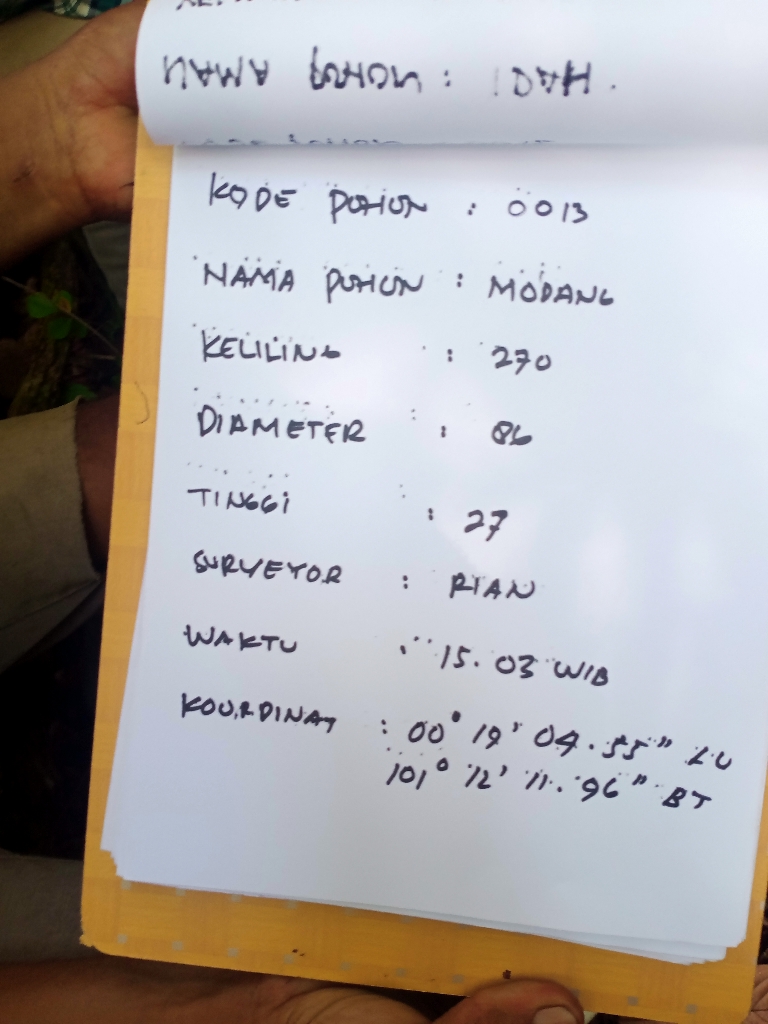 NAMA POHON : IDAH.
KODE POHON : 0013
NAMA POHON : MODANG
KELILING : 270
DIAMETER : 86
TINGGI : 27
SURVEYOR : RIAN
WAKTU : 15.03 WIB
KOORDINAT : 00° 19' 04.55" LU
101° 12' 11.96" BT